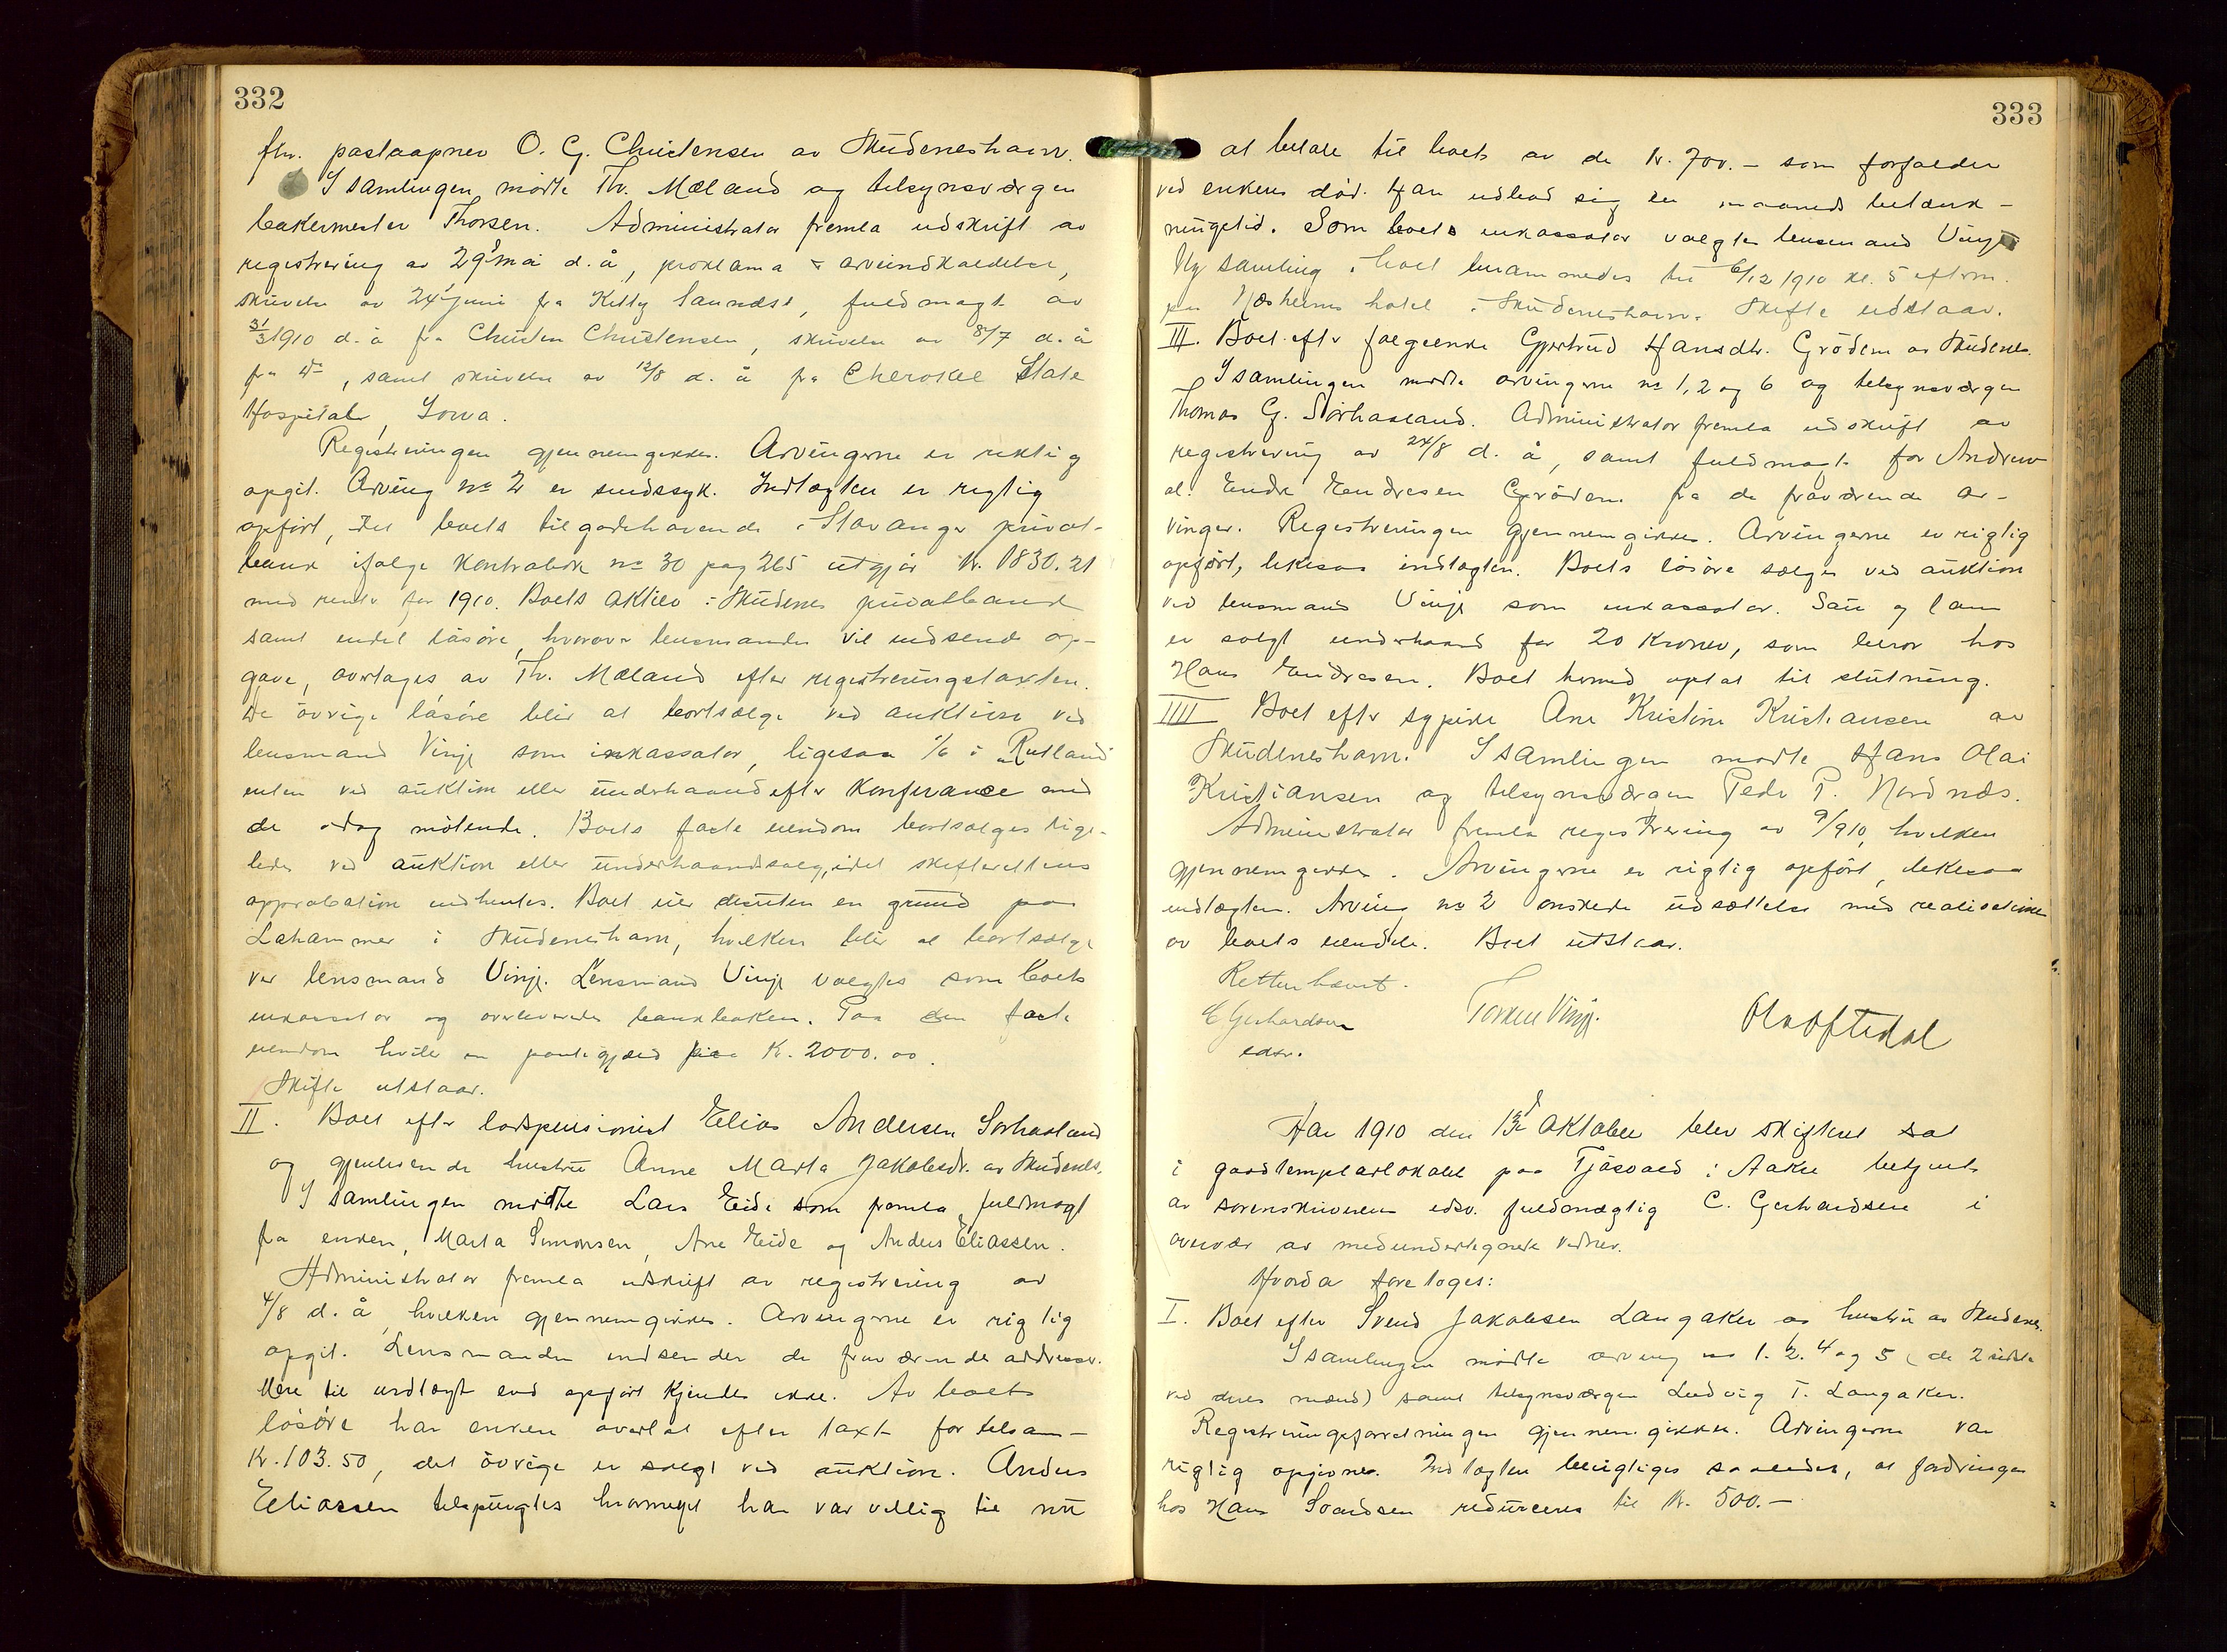 332
fhv. postaapner O. G. Christensen av Skudeneshavn.
I samlingen mødte Th. Mæland og tilsynsværgen
bakermester Thorsen. Administrator fremla udskrift av
registrering av 29 mai d. å, proklama & arveindkaldelse,
skrivelse av 24 juni fra Kitty, fuldmagt av
31/3 1910 d. å fra Christen Christensen, skrivelse av 8/7 d. å
fra do, samt skrivelse av 12/8 d. å fra Cherokee State
Hospital, Iowa.
Registreringen gjennemgikkes. Arvingerne er riktig
opgit. Arving no 2 er sindssyk. Indtægten er rigtig
opført, idet boets tilgodehavende i Stavanger privat-
bank ifølge Kontrabok no 30 pag 265 utgjør kr. 1830.21
med rente for 1910. Boets aktier i Skudenes privatbank
samt endel løsøre, hvorover lensmanden vil indsende op-
gave, overtages av Th. Mæland efter registreringstaxten.
De øvrige løsøre blir at bortsælge ved auktion ved
lensmand Vinje som inkassator, ligesaa 1/6 i "Rutland"
enten ved auktion eller underhaand efter Konferance med
de idag møtende. Boets faste eiendom bortsælges lige-
ledes ved auktion eller underhaandssalg, idet skifterettens
approbation indhentes. Boet eier desuten en grund paa
Lahammer i Skudeneshavn, hvilken blir at bortsælge
ved lensmand Vinje. Lensmand Vinje valgtes som boets
inkassator og overleveredes bankboken. Paa den faste
eiendom hviler en pantegjæld paa Kr. 2000.00.
Skifte utstaar.
II. Boet efter lodspensionist Elias Andersen Sørhaaland
og gjenlevende hustru Anne Marta Jakobsdr. av Skudenes.
I samlingen mødte Lars Eide som fremla fuldmagt
fra enken, Marta Simonsen, Ane Eide og Anders Eliassen.
Administrator fremla udskrift av registrering av
4/8 d. å, hvilken gjennemgikkes. Arvingerne er rigtig
opgit. Lensmanden indsender de fraværendes addresser.
Mere til indtægt end opført kjendes ikke. Av boets
løsøre har enken overtat efter taxt for tilsam-
Kr. 103.50, det øvrige er solgt ved auktion. Anders
Eliassen tilspurgtes hvormeget han var villig til nu
333
at betale til boet av de kr. 700.- som forfalder
ved enkens død. Han udbad sig en maaneds betænk-
ningstid. Som boets inkassator valgtes lensmand Vinje
Ny samling i boet berammedes til 6/12 1910 kl. 5 efterm.
paa Næsheims hotel i Skudeneshavn. Skifte udstaar.
III. Boet efter føgeenke Gjertrud Hansdtr. Grødem av Skudenes.
I samlingen mødte arvingerne no 1, 2 og 6 og tilsynsværgen
Thomas G. Sørhaaland. Administrator fremla udskrift av
registrering av 24/8 d. å, samt fuldmagt for Andrew
al. Endre Endresen Grødem fra de fraværende ar-
vinger. Registreringen gjennemgikkes. Arvingerne er rigtig
opført, likesaa indtægten. Boets løsøre sælges ved auktion
ved lensmand Vinje som inkassator. Sau og lam
er solgt underhaand for 20 Kroner, som beror hos
Hans Endresen. Boet hermed optat til slutning.
IIII Boet efter sypike Ane Kristine Kristiansen av
Skudeneshavn. I samlingen mødte Hans Olai
Kristiansen og tilsynsværgen Peder P. Nordnæs.
Administrator fremla registrering av 9/9 10, hvilken
gjennemgikkes. Arvingerne er rigtig opført, likesaa
indtægten. Arving no 2 ønskede udsættelse med realisationen
av boets eiendele. Boet utstaar.
Retten hævet.
C Gerhardsen
edsv.
Torkell Vinje.
Ola Oftedal
Aar 1910 den 13de oktober blev skifteret sat
i goodtemplarlokalet paa Tjøsvold i Aakre betjent
av sorenskriveren edsv. fuldmægtig C. Gerhardsen i
overvær av medundertegnede vidner.
Hvorda foretoges:
I. Boet efter Svend Jakobsen Langaker og hustru av Skudenes.
I samlingen mødte arving no 1. 2. 4 og 5 (de 2 sidste
ved deres mænd) samt tilsynsværgen Ludvig T. Langaker.
Registreringsforretningen gjennemgikkes. Arvingerne var
rigtig opgivne. Indtægten berigtiges saaledes, at fordringen
hos Hans Svendsen reduceres til Kr. 500.-